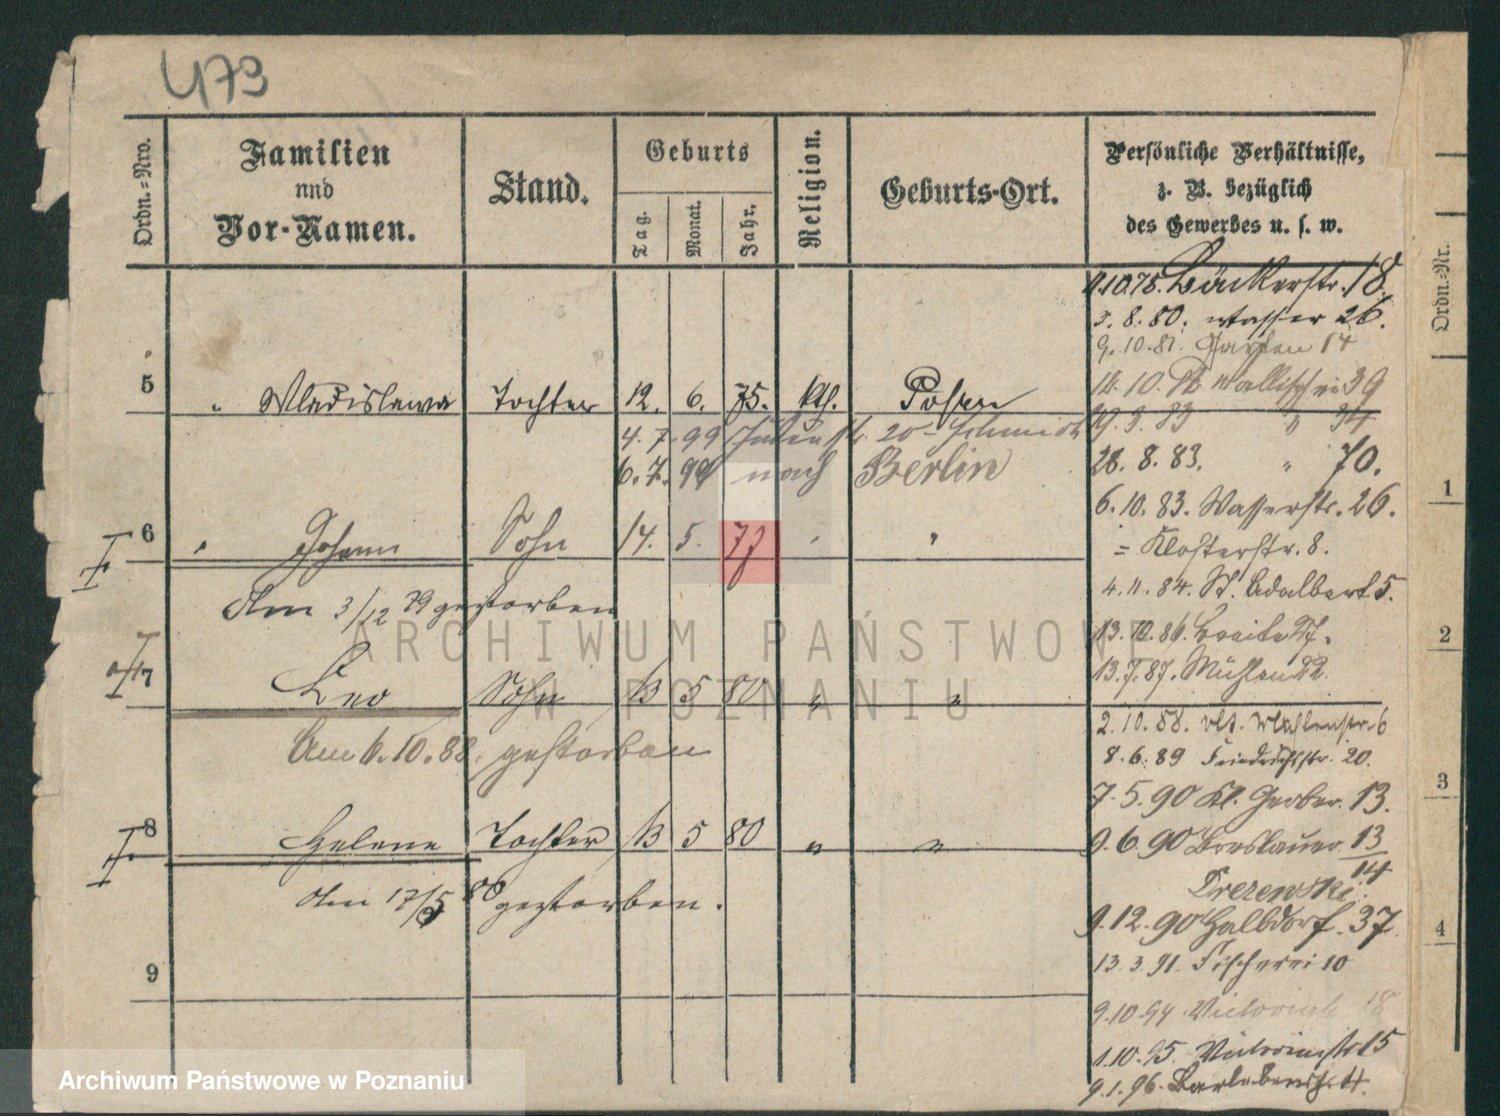 473
Ordn.=Nro.
Familien
und
Vor-Namen.
Stand.
Geburts
Tag.
Monat.
Jahr.
Religion.
Geburts-Ort.
Persönliche Verhältnisse,
z. B. bezüglich
des Gewerbes u. s. w.
1.10.78. Bäckerstr. 18.
3. 8. 80. Wasser 26.
9. 10. 81. 14
5 " Wladislawa Tochter 12. 6. 75. kth. Posen
12. 10. Wallischei 39
4. 7. 99 Judenstr. 20
29. 3. 83 " 34
6. 7. 99 nach Berlin
28. 8. 83. " 70.
6. 10. 83. Wasserstr. 26.
6 " Johann Sohn 14. 5. 77 " "
= Klosterstr. 8.
Am 3/12 79 gestorben
4. 11. 84. St. Adalbert 5.
13. 10. 86. Breite 27.
7 Leo Sohn 13 5 80 " "
13. 7. 87. Mühlen 22.
Am 6. 10. 88. gestorben
2. 10. 88.
8. 6. 89 Friedrichstr. 20.
7. 5. 90 Kl. Gerber. 13.
8 Helene Tochter 13 5 80 " "
9. 6. 90 Breslauer. 13/14
Am 17/5 80 gestorben.
9. 12. 90 Halbdorf. 37
13. 3. 91. Fischerei 10
9
9. 10. 94 Victoriastr. 18
1. 10. 95. Victoriastr. 15
9. 1. 96.
Ordn.=Nr.
1
2
3
4
ARCHIWUM PAŃSTWOWE
W POZNANIU
Archiwum Państwowe w Poznaniu